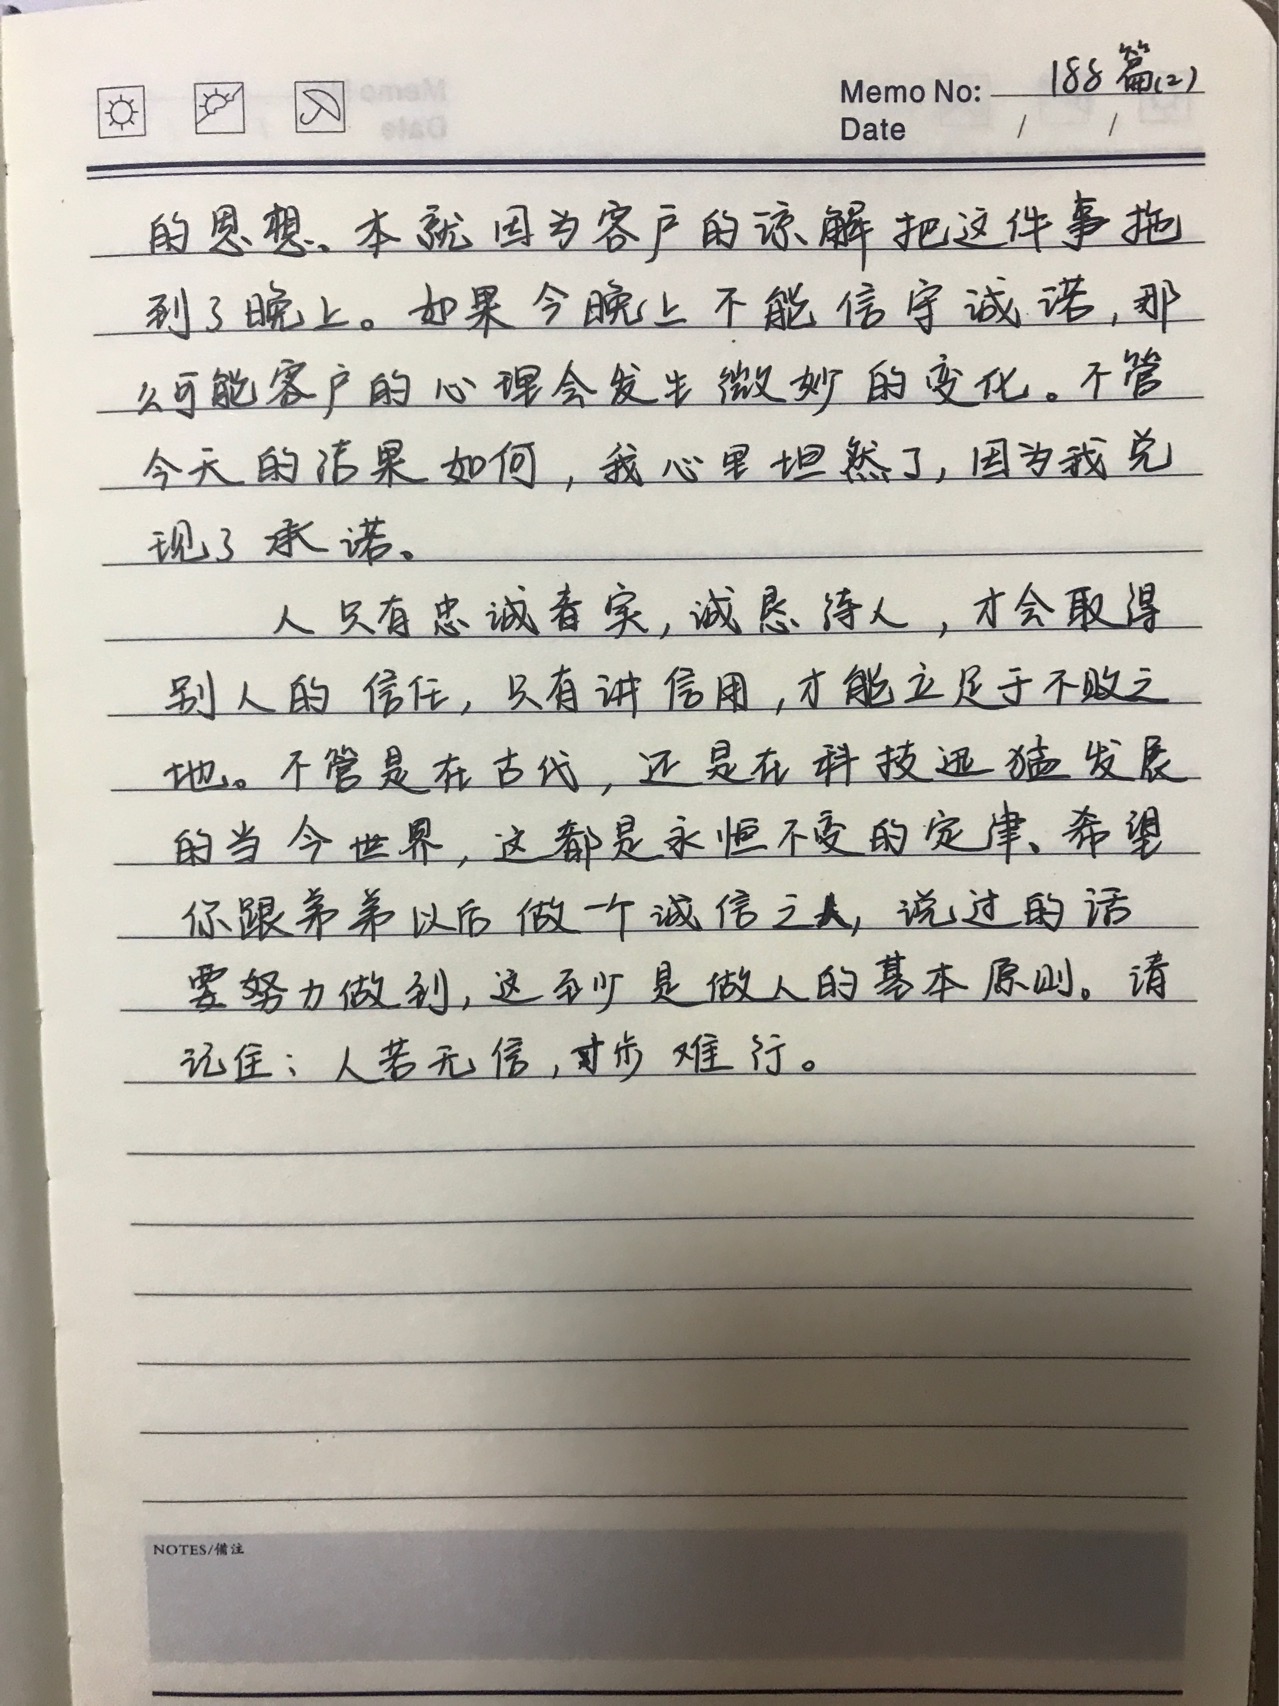 Memo No: 188篇(2)
Date / /
的思想、本就因为客户的谅解把这件事拖
到了晚上。如果今晚上不能信守诚诺,那
么可能客户的心理会发生微妙的变化。不管
今天的结果如何,我心里坦然了,因为我兑
现了承诺。
人只有忠诚老实,诚恳待人,才会取得
别人的信任,只有讲信用,才能立足于不败之
地。不管是在古代,还是在科技迅猛发展
的当今世界,这都是永恒不变的定律、希望
你跟弟弟以后做一个诚信之人,说过的话
要努力做到,这至少是做人的基本原则。请
记住:人若无信,寸步难行。
NOTES/備注